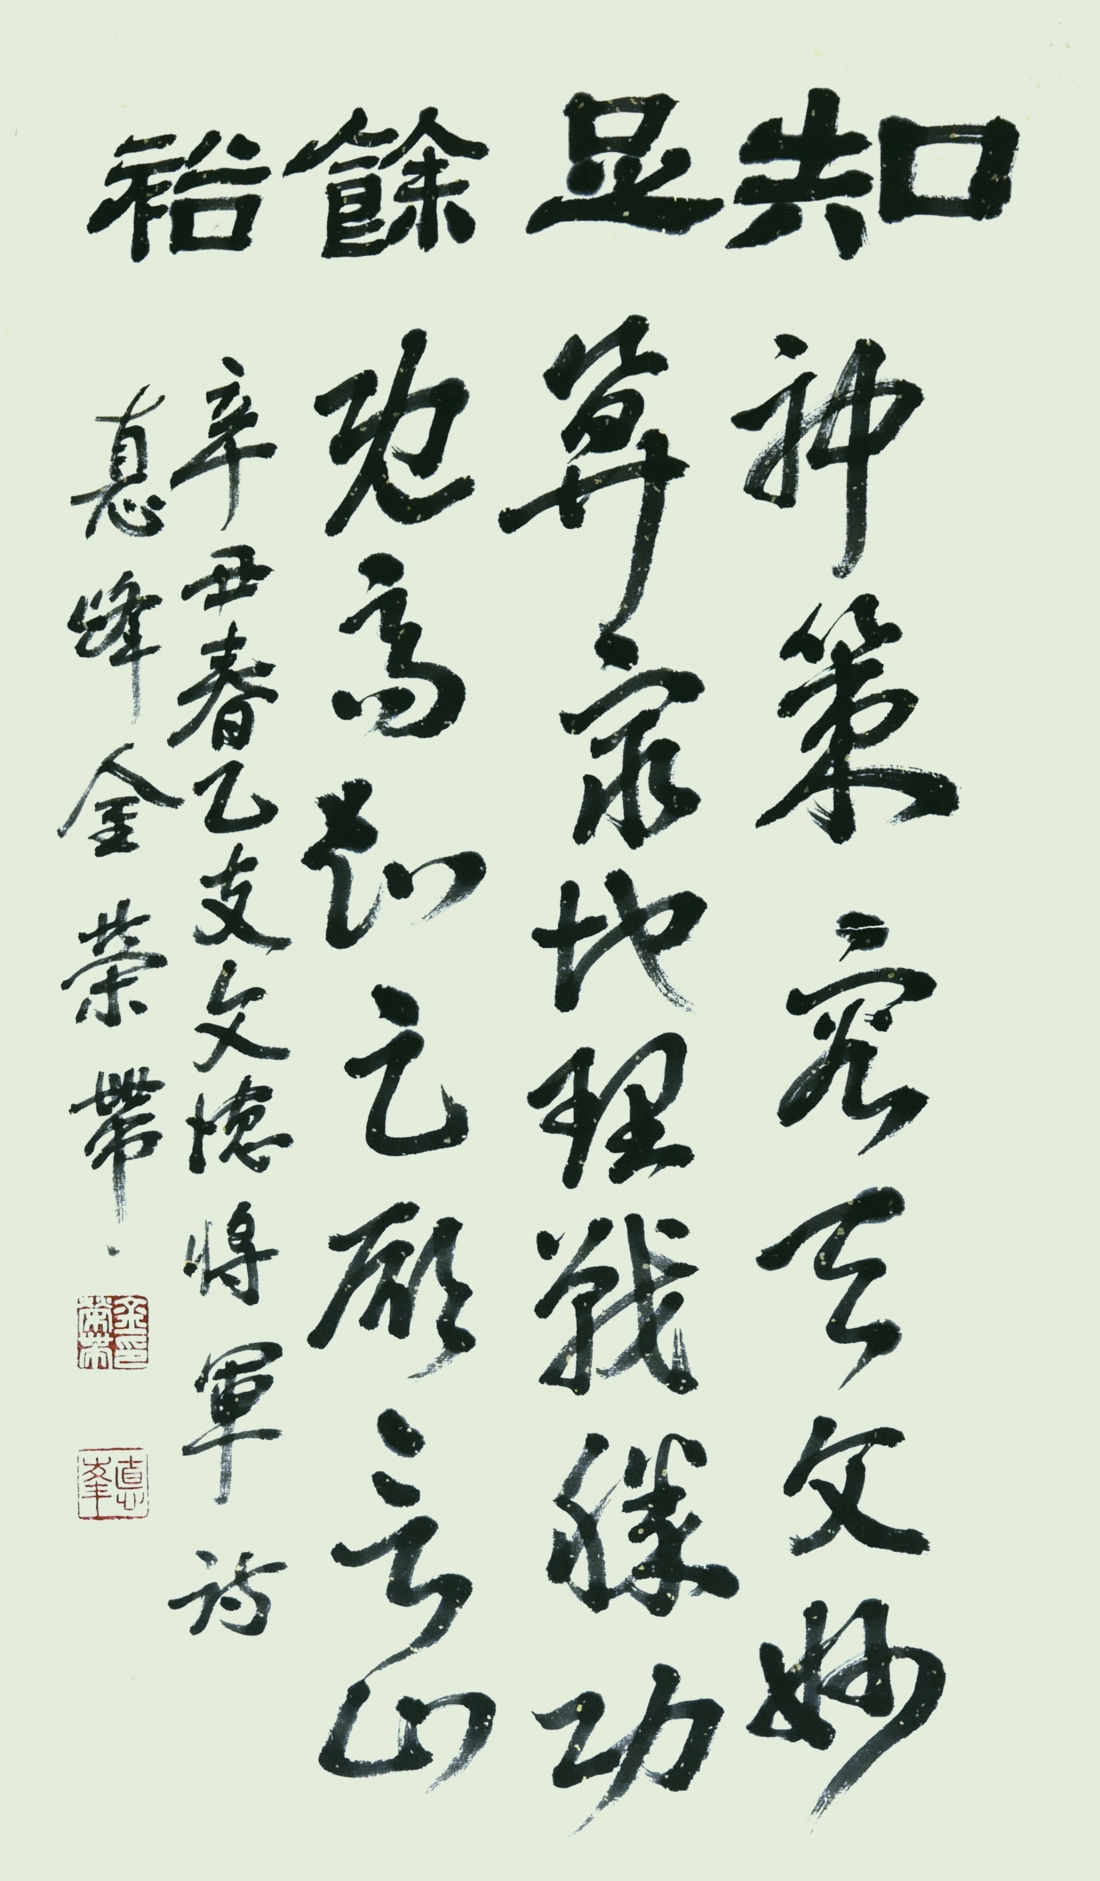 知足餘裕
神策究天文妙
算窮地理戰勝功
既高知足願云止
辛丑春乙支文德將軍詩
悳峰金榮帶
金榮帶印
悳峯